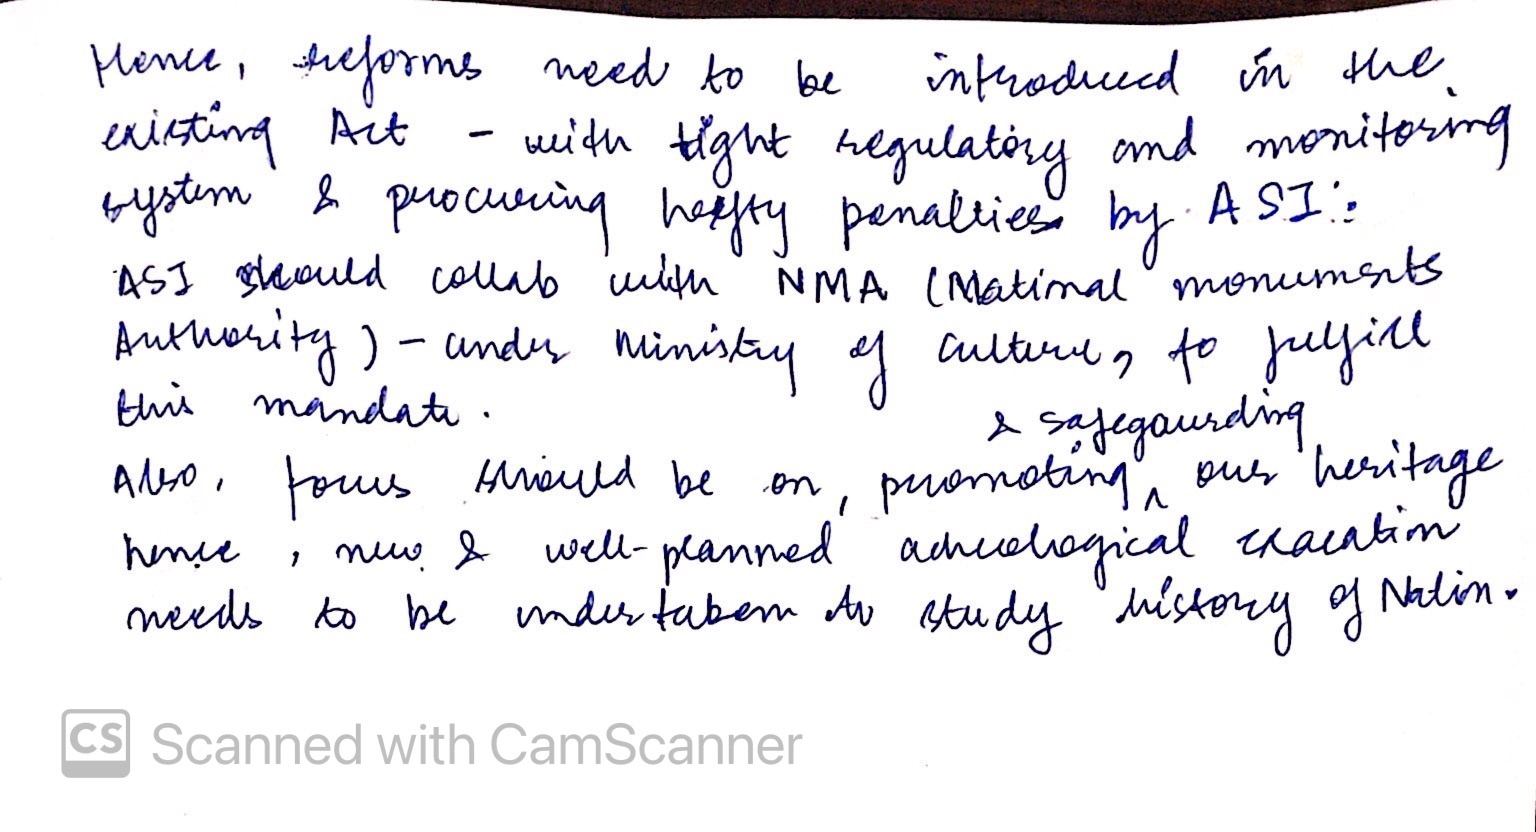 Hence, reforms need to be introduced in the
existing Act - with tight regulatory and monitoring
system & procuring hefty penalties by ASI.:
ASI should collab with NMA (National monuments
Authority) - under Ministry of Culture, to fulfill
this mandate.
& safegaurding
Also, focus should be on, promoting ^ our heritage
hence, new & well-planned acheological exacation
needs to be undertaken to study history of Nation.
CS Scanned with CamScanner